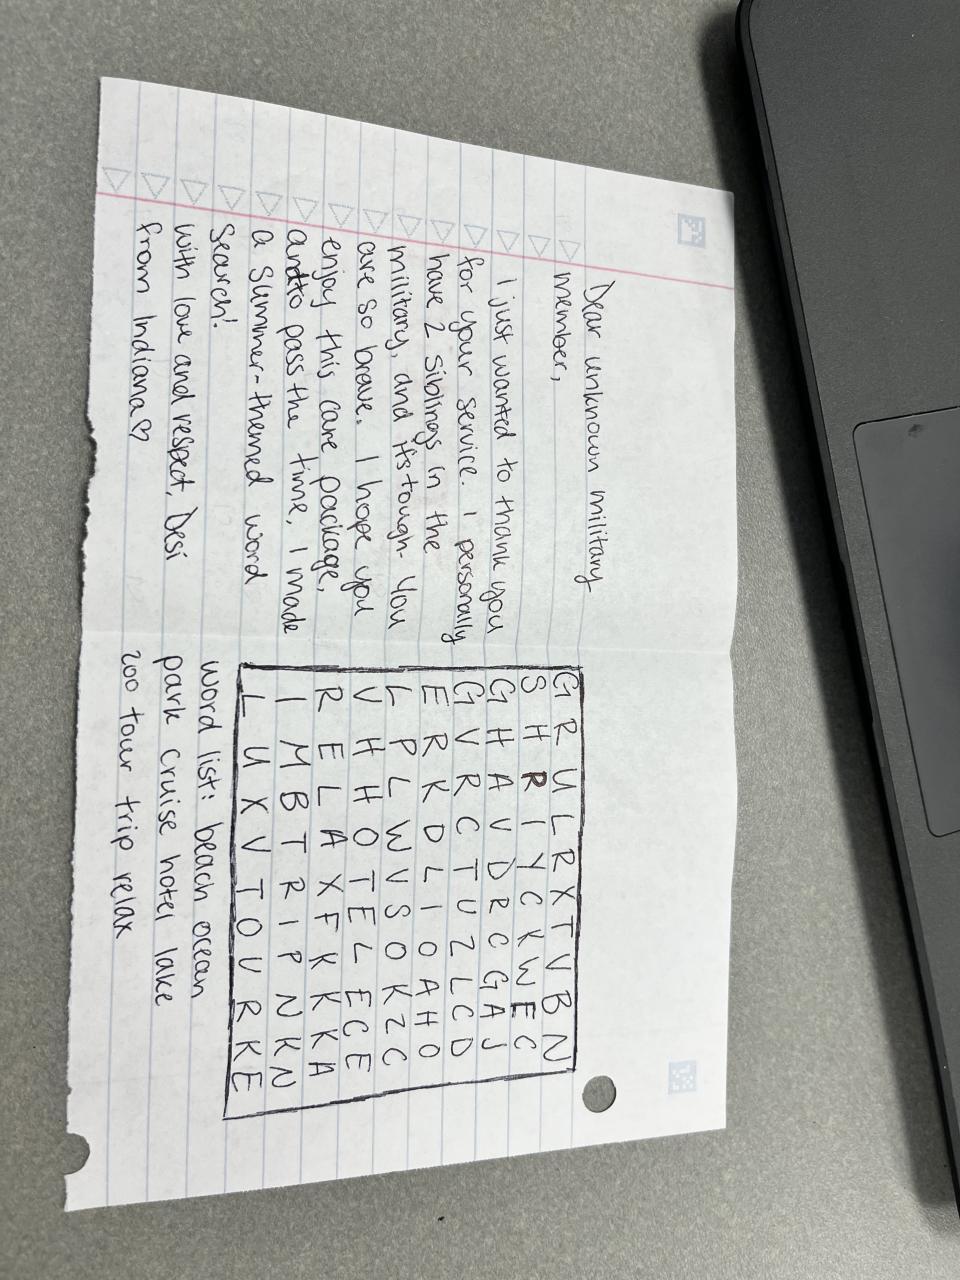 Dear unknown military
member,
I just wanted to thank you
for your service. I personally
have 2 siblings in the
military, and its tough. You
are so brave. I hope you
enjoy this care package,
and to pass the time, I made
a Summer-themed word
Search!
with love and respect, Desi
from Indiana♡
G R U L R X T V B N
S H R I Y C K W E C
G H A V D R C G A J
G V R C T U Z L C D
E R K D L I O A H O
L P L W V S O K Z C
V H H O T E L E C E
R E L A X F K K K A
I M B T R I P N K N
L U X V T O U R K E
word list: beach ocean
park cruise hotel lake
zoo tour trip relax